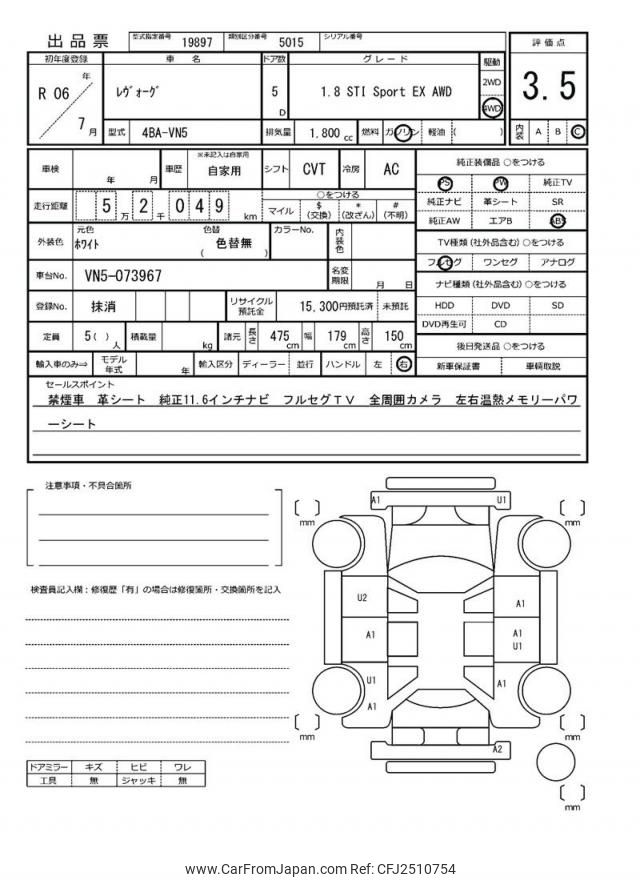 出品票
型式指定番号 19897 類別区分番号 5015 シリアル番号
初年度登録 車名 ドア数 グレード 駆動 評価点
R 06 年 7 月 ﾚヴｫｰグ 5 D 1.8 STI Sport EX AWD 2WD 4WD 3.5
型式 4BA-VN5 排気量 1.800 cc 燃料 ガソリン 軽油 ( ) 内装 A B C
車検 年 月 車歴 ※未記入は自家用 自家用 シフト CVT 冷房 AC
純正装備品 ○をつける
PS PW 純正TV
純正ナビ 革シート SR
純正AW エアB ABS
走行距離 5 万 2 千 0 4 9 km
○をつける
マイル $ (交換) * (改ざん) # (不明)
TV種類(社外品含む)○をつける
フルセグ ワンセグ アナログ
外装色 元色 ホワイト 色替 色替無 ( ) カラーNo. 内装色
車台No. VN5-073967 名変期限 月 日
ナビ種類(社外品含む)○をつける
HDD DVD SD
DVD再生可 CD
登録No. 抹消 リサイクル預託金 15,300円預託済 未預託
定員 5( ) 人 積載量 kg 諸元 長さ 475 cm 幅 179 cm 高さ 150 cm
後日発送品 ○をつける
新車保証書 車輌取説
輸入車のみ⇒ モデル年式 年 輸入区分 ディーラー 並行 ハンドル 左 右
セールスポイント
禁煙車 革シート 純正11.6インチナビ フルセグTV 全周囲カメラ 左右温熱メモリーパワ
ーシート
注意事項・不具合箇所
検査員記入欄:修復歴「有」の場合は修復箇所・交換箇所を記入
A1 U1
mm mm
U2 A1
A1 A1
U1
U1 A1
A1
mm mm
A2
mm
ドアミラー キズ ヒビ ワレ
工具 無 ジャッキ 無
www.CarFromJapan.com Ref: CFJ2510754